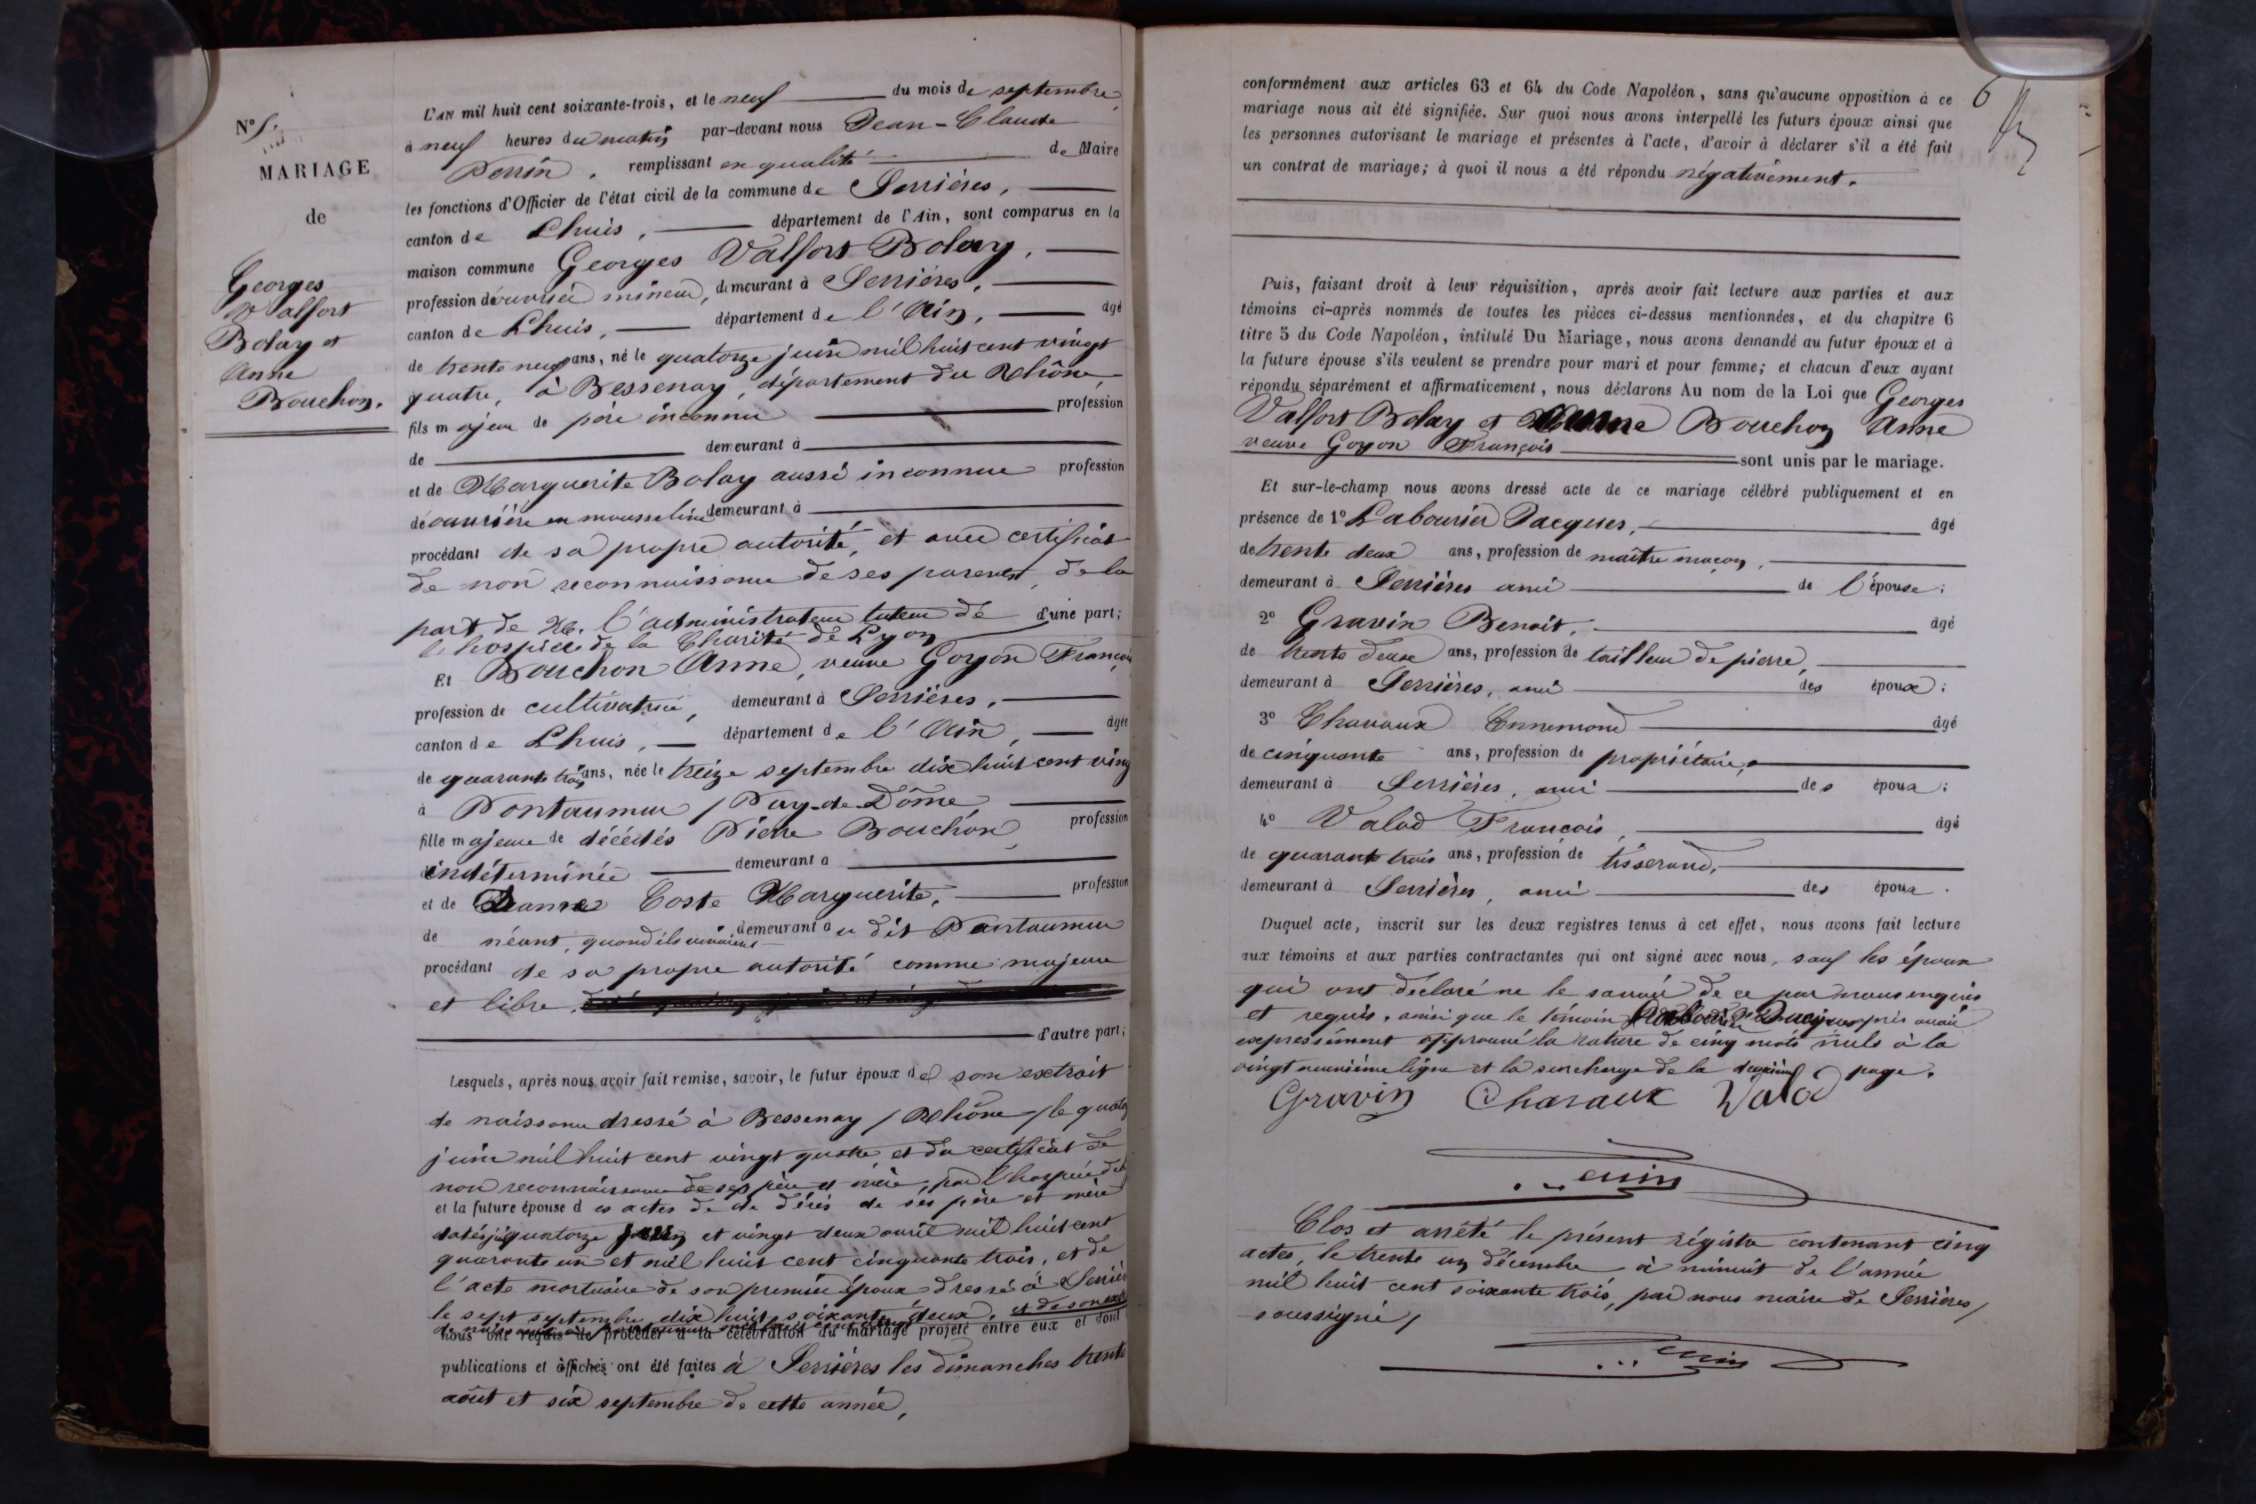 N° 5.
MARIAGE
de
Georges
Valfort
Bolay et
Anne
Bouchon.
L'AN mil huit cent soixante-trois, et le neuf du mois de septembre,
à neuf heures du matin par-devant nous Jean-Claude
Perrin, remplissant en qualité de Maire
les fonctions d'Officier de l'état civil de la commune de Serrières,
canton de Lhuis, département de l'Ain, sont comparus en la
maison commune Georges Valfort Bolay,
profession d'ouvrier mineur, demeurant à Serrières,
canton de Lhuis, département de l'Ain, âgé
de trente neuf ans, né le quatorze juin mil huit cent vingt
quatre, à Bessenay, département du Rhône,
fils majeur de père inconnu profession
de demeurant à
et de Marguerite Bolay aussi inconnue profession
d'ouvrière en mousseline demeurant à
procédant de sa propre autorité, et avec certificat
de non reconnaissance de ses parents, de la
part de M. l'administrateur tuteur de d'une part;
l'hospice de la Charité de Lyon
Et Bouchon Anne, veuve Goyon François
profession de cultivatrice, demeurant à Serrières,
canton de Lhuis, département de l'Ain, âgée
de quarante trois ans, née le treize septembre dix huit cent vingt
à Pontaumur / Puy-de-Dôme
fille majeure de décédés Pierre Bouchon, profession
indéterminée demeurant à
et de Coste Marguerite, profession
de néant, quand ils vivaient demeurant au dit Pontaumur
procédant de sa propre autorité comme majeure
et libre.
d'autre part;
Lesquels, après nous avoir fait remise, savoir, le futur époux de son extrait
de naissance dressé à Bessenay / Rhône / le quatorze
juin mil huit cent vingt quatre, et du certificat de
non reconnaissance de ses père et mère, par l'hospice
et la future épouse des actes de décès de ses père et mère
datés quatorze et vingt deux avril mil huit cent
quarante un et mil huit cent cinquante trois, et de
l'acte mortuaire de son premier époux dressé à Serrières
le sept septembre dix huit soixante deux, et de son
nous ont requis de procéder à la célébration du mariage projeté entre eux et dont
publications et affiches ont été faites à Serrières les dimanches trente
août et six septembre de cette année,
6
conformément aux articles 63 et 64 du Code Napoléon, sans qu'aucune opposition à ce
mariage nous ait été signifiée. Sur quoi nous avons interpellé les futurs époux ainsi que
les personnes autorisant le mariage et présentes à l'acte, d'avoir à déclarer s'il a été fait
un contrat de mariage; à quoi il nous a été répondu négativement.
Puis, faisant droit à leur réquisition, après avoir fait lecture aux parties et aux
témoins ci-après nommés de toutes les pièces ci-dessus mentionnées, et du chapitre 6
titre 5 du Code Napoléon, intitulé Du Mariage, nous avons demandé au futur époux et à
la future épouse s'ils veulent se prendre pour mari et pour femme; et chacun d'eux ayant
répondu séparément et affirmativement, nous déclarons Au nom de la Loi que Georges
Valfort Bolay et Bouchon Anne
veuve Goyon François
sont unis par le mariage.
Et sur-le-champ nous avons dressé acte de ce mariage célébré publiquement et en
présence de 1° Labourier Jacques, âgé
de trente deux ans, profession de maître maçon,
demeurant à Serrières ami de l'épouse;
2° Gravin Benoit, âgé
de trente deux ans, profession de tailleur de pierre,
demeurant à Serrières, ami des époux;
3° Charaux Ennemond âgé
de cinquante ans, profession de propriétaire,
demeurant à Serrières, ami des époux;
4° Valod François, âgé
de quarante trois ans, profession de tisserand,
demeurant à Serrières, ami des époux.
Duquel acte, inscrit sur les deux registres tenus à cet effet, nous avons fait lecture
aux témoins et aux parties contractantes qui ont signé avec nous, sauf les époux
qui ont déclaré ne le savoir de ce par nous enquis
et requis, ainsi que le témoin après avoir
expressément approuvé la rature de cinq mots nuls à la
vingt neuvième ligne et la surcharge de la deuxième page.
Gravin Charaux Valod
Perrin
Clos et arrêté le présent régistre contenant cinq
actes, le trente un décembre à minuit de l'année
mil huit cent soixante trois, par nous maire de Serrières,
soussigné,
Perrin